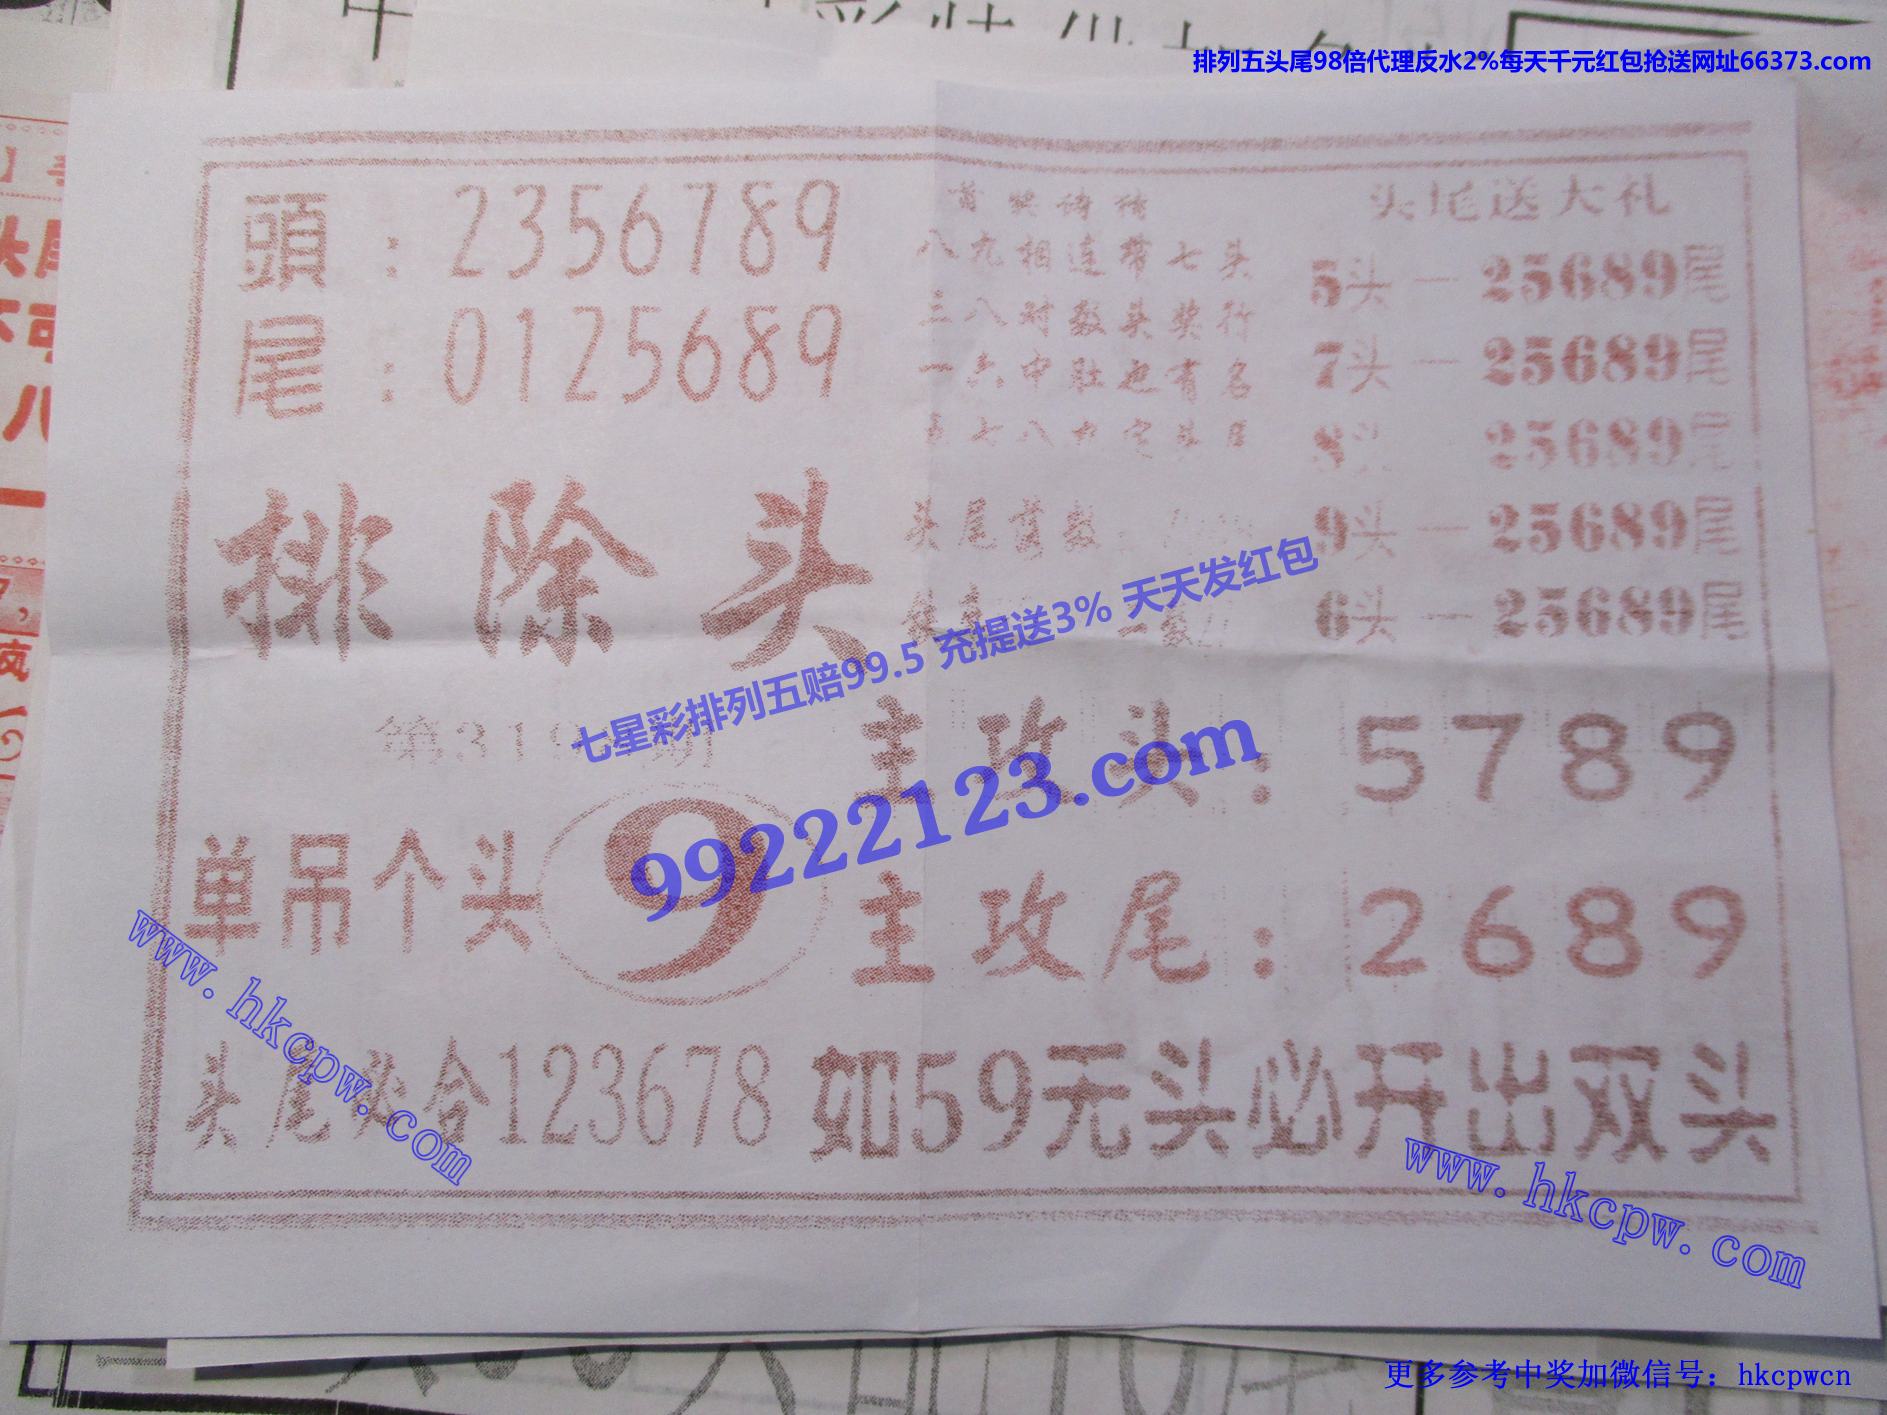 排列五头尾98倍代理反水2%每天千元红包抢送网址66373.com
頭：2356789
尾：0125689
排除头
八九相连带七头
三八对数头奖行
一六中肚也有名
七八
头尾
头尾送大礼
5头一25689尾
7头一25689尾
8头一25689尾
9头一25689尾
6头一25689尾
七星彩排列五赔99.5 充提送3% 天天发红包
99222123.com
第319 期
单吊个头 9
主攻头：5789
主攻尾：2689
头尾 合123678
如59无头必开出双头
www.hkcpw.com
www.hkcpw.com
更多参考中奖加微信号：hkcpwcn